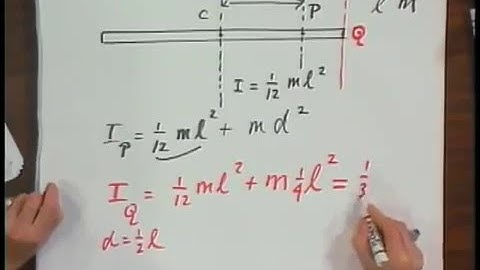 l m
C P
Q
I = 1/12 ml²
I_P = 1/12 ml² + md²
I_Q = 1/12 ml² + m 1/4 l² = 1/3
d = 1/2 l